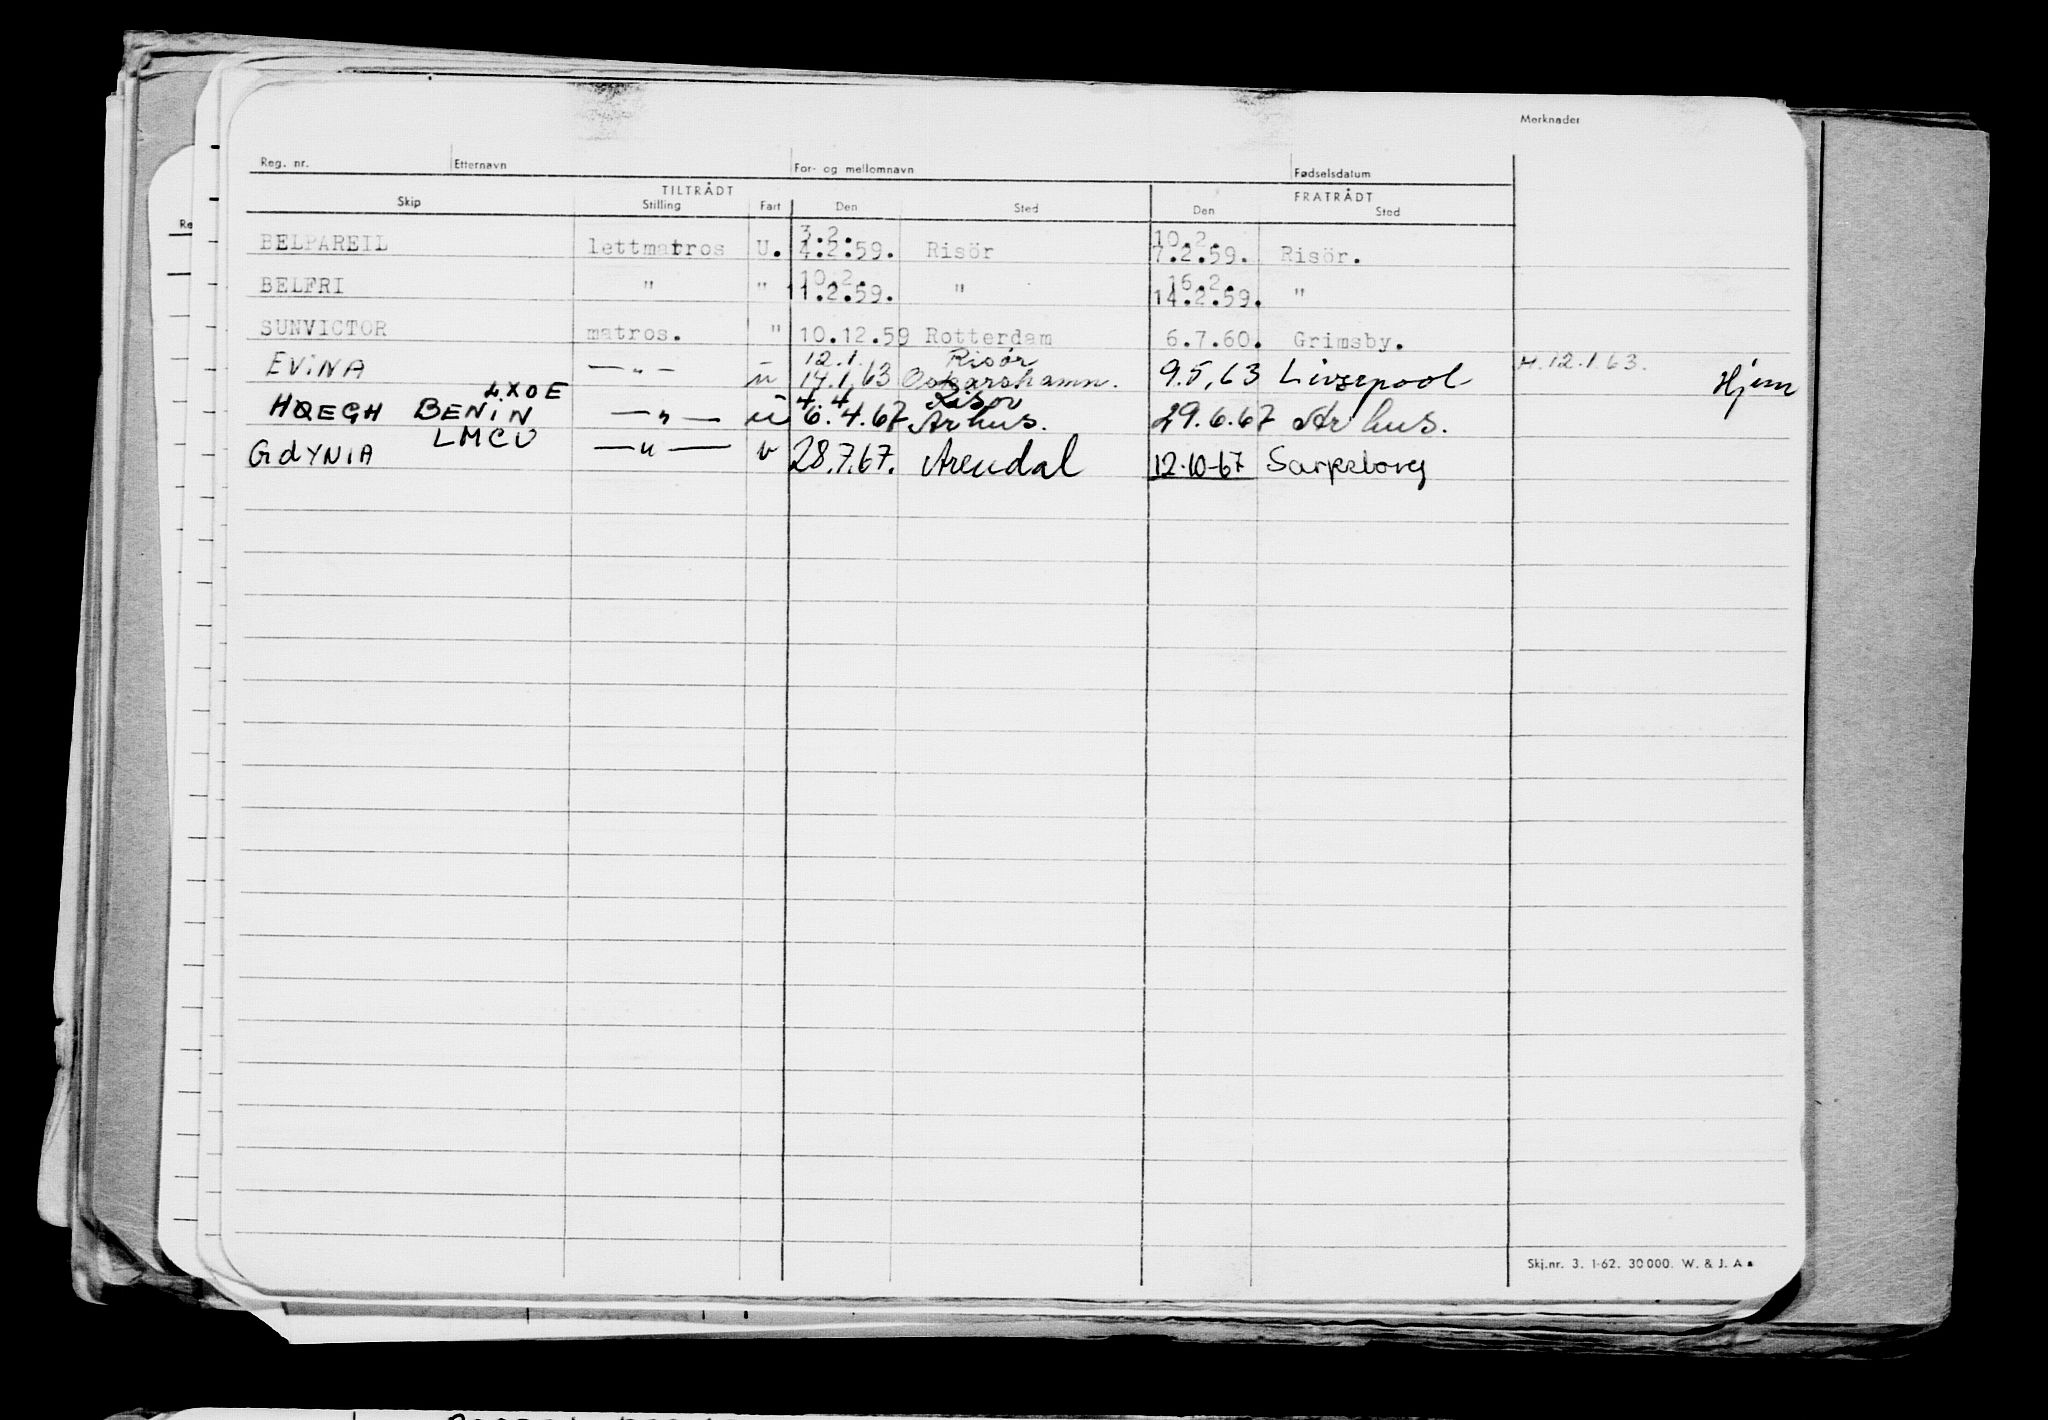 Merknader
Reg. nr. Etternavn For- og mellomnavn Fødselsdatum
TILTRÅDT FRATRÅDT
Skip Stilling Fart Den Sted Den Sted
3.2. 10.2.
BELPAREIL lettmatros U. 4.2.59. Risör 7.2.59. Risör.
10.2. 16.2.
BELFRI " " 11.2.59. " 14.2.59. "
SUNVICTOR matros. " 10.12.59 Rotterdam 6.7.60. Grimsby.
12.1. Risør
EVINA —"— u 14.1.63 Oskarshamn. 9.5.63 Liverpool H.12.1.63. Hjem
LXOE 4.4. Risør
HØEGH BENIN —"— u 6.4.67 Arhus. 29.6.67 Arhus.
LMCU
GdYNIA —"— v 28.7.67. Arendal 12.10-67 Sarpsborg
Skj.nr. 3. 1-62. 30000. W. & J. A
Re